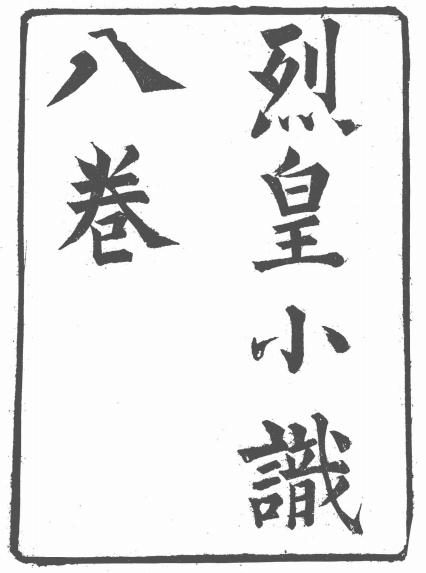 烈皇小識
八卷